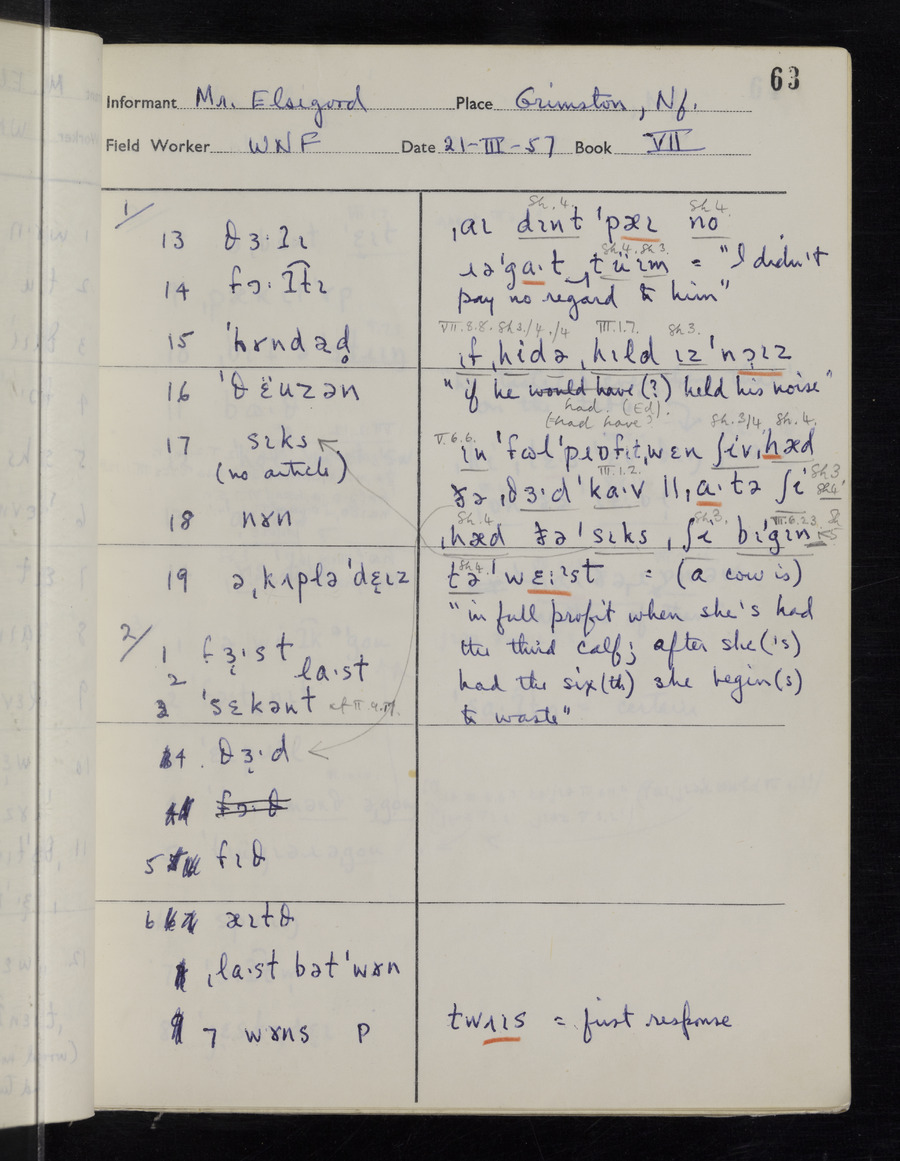 63
Informant Mr. Elsegood Place Grimston, Nf.
Field Worker WNF Date 21-III-57 Book VII
1/
13 θɜ:Iɩ
14
15 ˈhɤndəd̥
16 ˈθëuzən
17 sɩks
(no article)
18 nɤn
19
2/
1 la·st
2
3 ˈsɛkənt cf II.9.
4 θɜ̣·d
5 fɩθ
6 æɩtθ
ˌla·st bətˈwɤn
7 wɤns P
Sh. 4. Sh 4.
ˌaɩ dɪnt ˈpæɩ no
Sh. 4. Sh 3.
ɹəˈga·t tüɩm = "I didn't
pay no regard to him"
VII.8.8. Sh 3/4./4 III.1.7. Sh 3.
ɩf ˌhidə ˌhɛld ɩz ˈnɔɩz
"if he would have (?) held his noise"
had. (Ed).
(had have?
V.6.6. Sh. 3/4. Sh. 4.
ɩn ˈfʊl ˈpɹɒfɩt, wɛn ʃiv ˌhæd
III.1.2.
ðə ˌθɜ·d ˈka·v ||, a·tə ʃi Sh 3 Sh 4
Sh. 4 Sh. 3. VII.6.23.
ˌhæd ðə ˈsɩks , ʃi bɩˈgɩn
Sh 4.
tə ˈwɛɩst = (a cow is)
"in full profit when she's had
the third calf; after she('s)
had the six(th) she begin(s)
to waste"
twʌɩs = first response